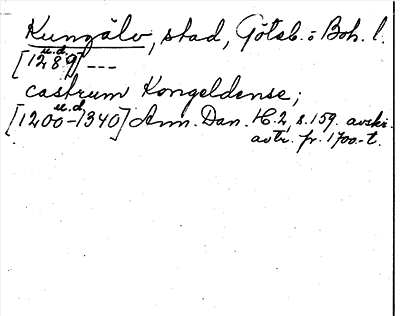 Kungälv, stad, Götsb. o Boh. l.
u.d.
[1289] ---
castrum Kongeldense;
u.d.
[1200-1340] Ann. Dan. H. 2, s. 159. avskr.
avtr. fr. 1700-t.